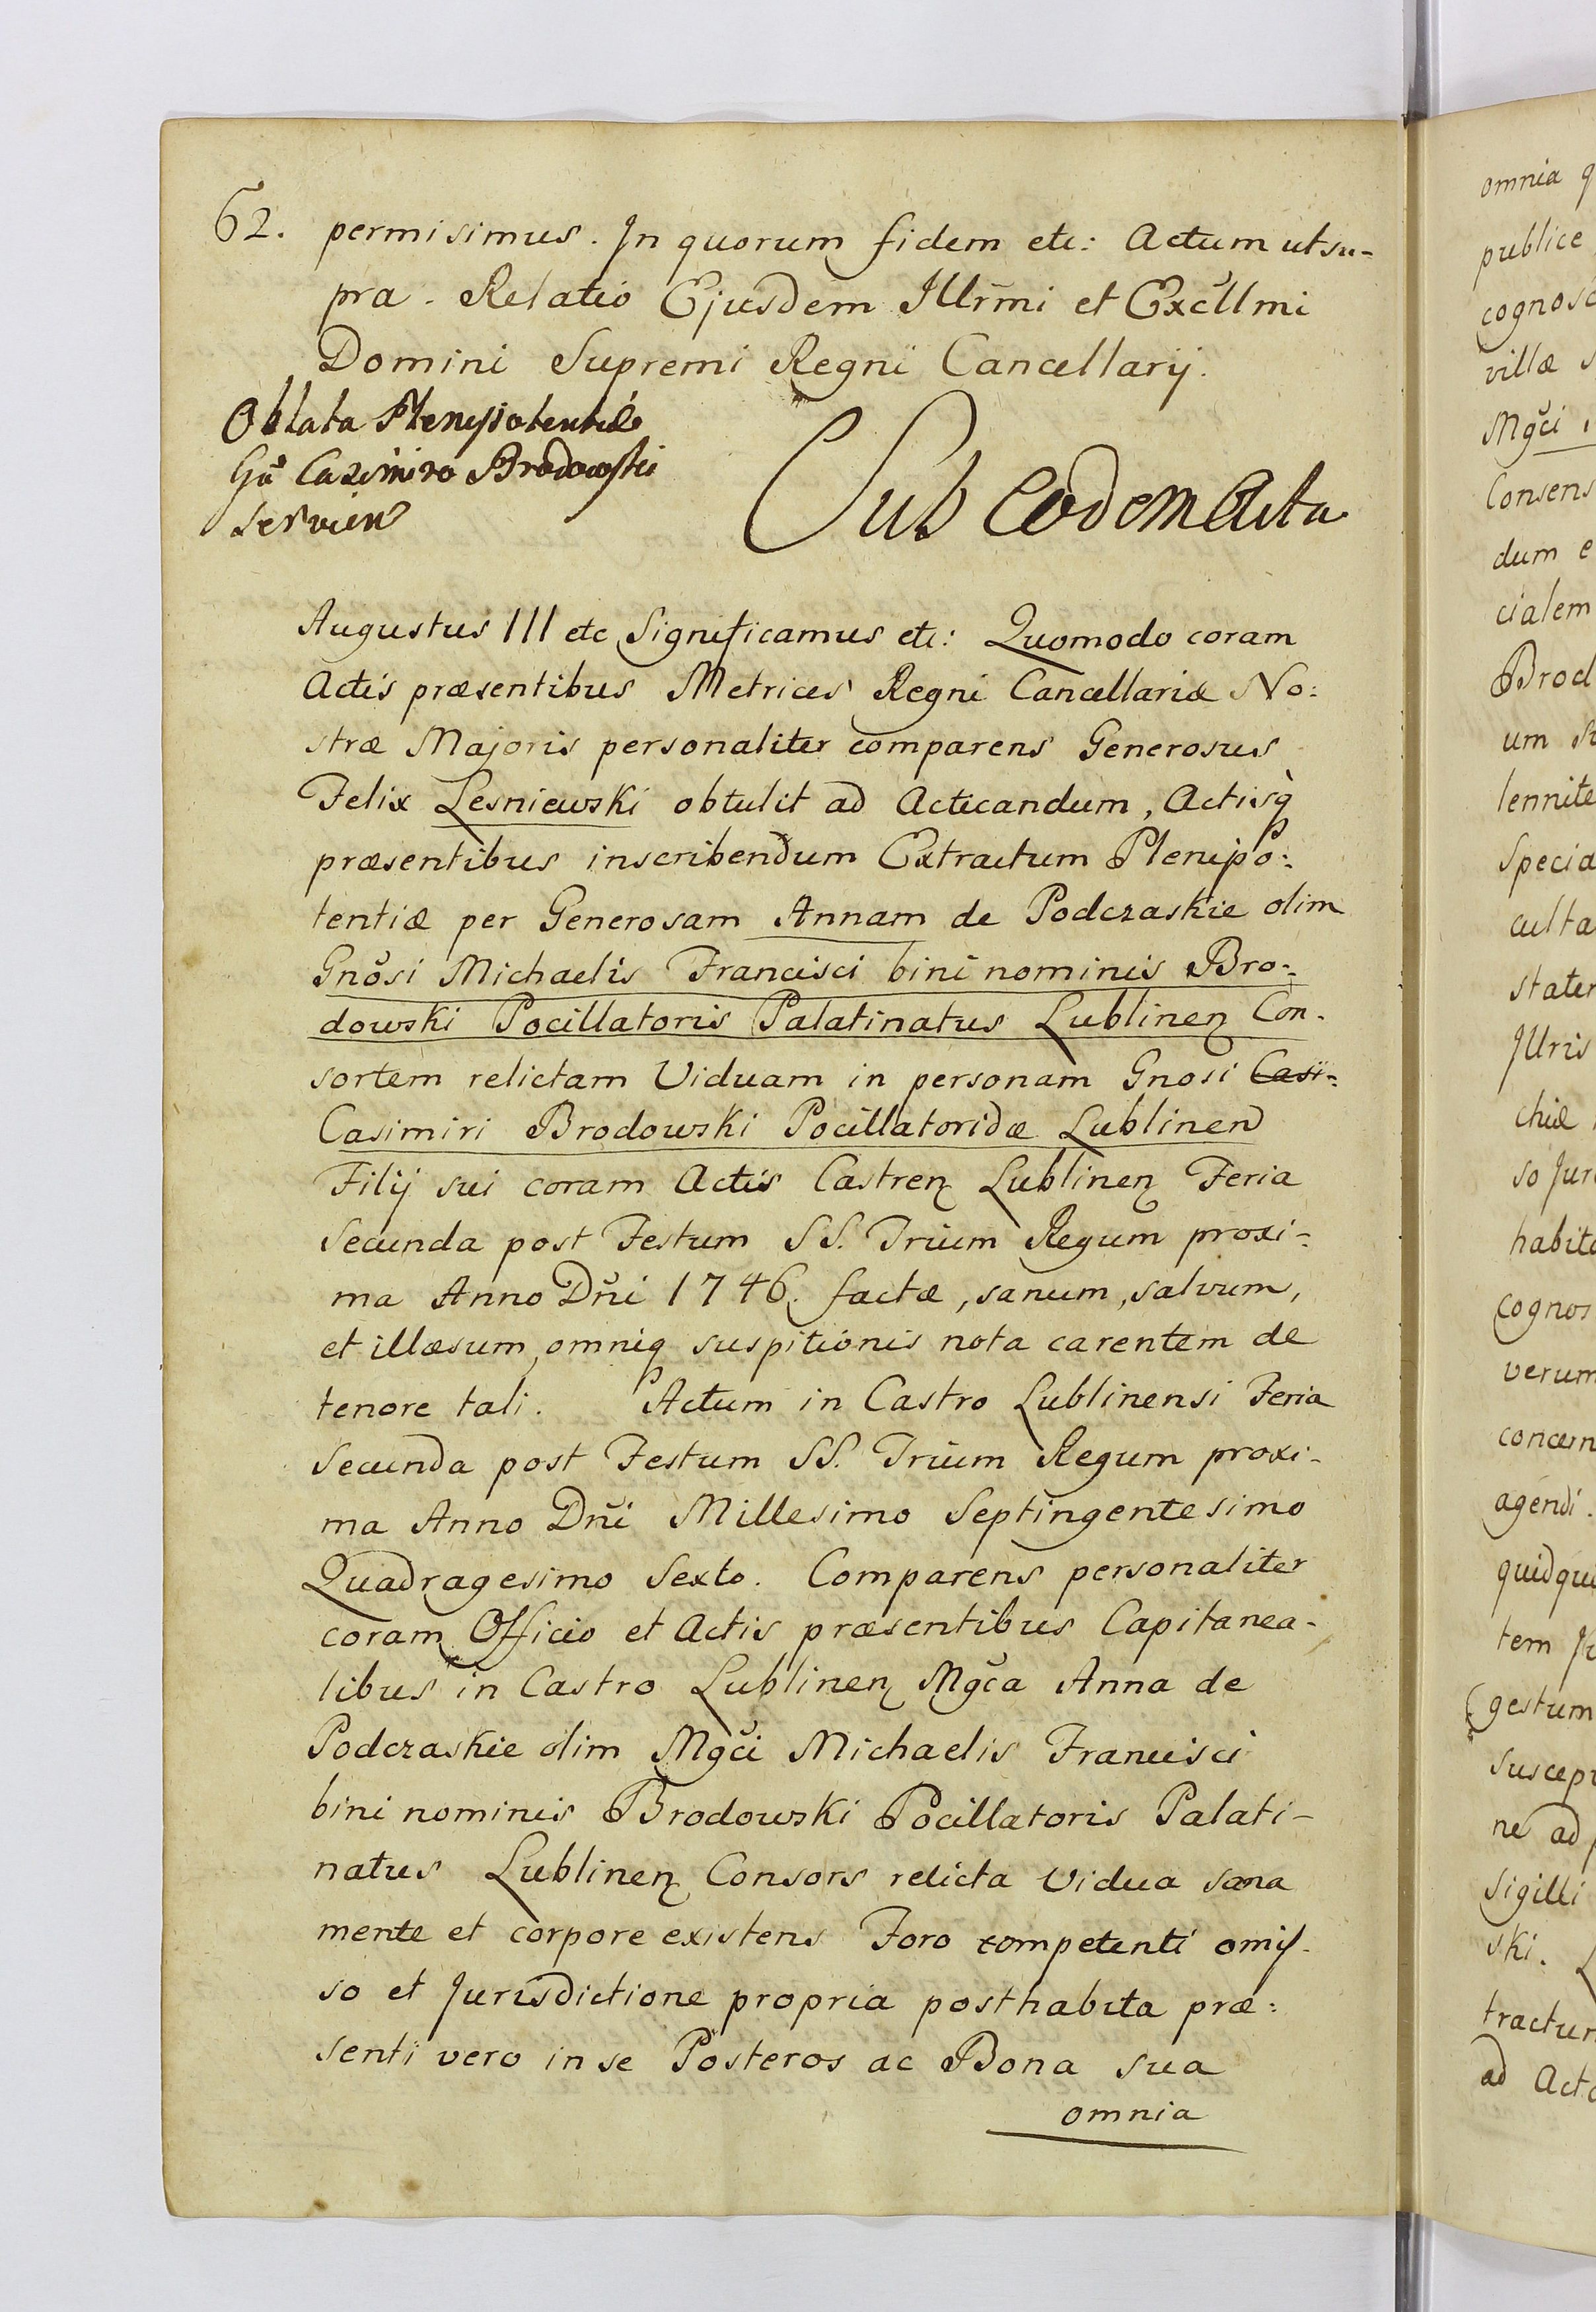 62. permisimus. In quorum fidem etc: Actum ut su-
pra. Relatio Ejusdem Illrm̃i et Excẽllmi
Domini Supremi Regni Cancellarij.
Oblata Plenipotentiæ
Gñ Casimiro Brodowski
servien
Sub Eodem Acta
Augustus III etc Significamus etc: Quomodo coram
Actis præsentibus Metrices Regni Cancellariæ No:
stræ Majoris personaliter comparens Generosus
Felix Lesniewski obtulit ad Acticandum, Actisq̀
præsentibus inscribendum Extractum Plenipo:
tentiæ per Generosam Annam de Podczaskie olim
Gnŏsi Michaelis Francisci bini nominis Bro:
dowski Pocillatoris Palatinatus Lublinen Con-
sortem relictam Viduam in personam Gnosi Casi:
Casimiri Brodowski Pocillatoridæ Lublinen
Filij sui coram Actis Castren Lublinen Feria
Secunda post Festum SS. Trium Regum proxi:
ma Anno Dñi 1746. factæ, sanum, salvum,
et illæsum, omniq suspitionis nota carentem de
tenore tali. Actum in Castro Lublinensi Feria
Secunda post Festum SS. Trium Regum proxi-
ma Anno Dñi Millesimo Septingentesimo
Quadragesimo Sexto. Comparens personaliter
coram Officio et Actis præsentibus Capitanea-
libus in Castro Lublinen Mgc̃a Anna de
Podczaskie olim Mgc̃i Michaelis Francisci
bini nominis Brodowski Pocillatoris Palati-
natus Lublinen Consors relicta Vidua sana
mente et corpore existens Foro competenti omis-
so et Jurisdictione propria posthabita præ:
senti vero in se Posteros ac Bona sua
omnia
omnia q
publice
cognosc
villæ s
Mgc̃i
Consens
dum e
cialem
Brod
um
lennite
Specia
culta
stater
Illris
chiæ
so Jur
habita
cognos
verum
concern
agendi.
quidqui
tem
gestum
suscep
ne ad
Sigilli
ski.
tractum
ad Acta